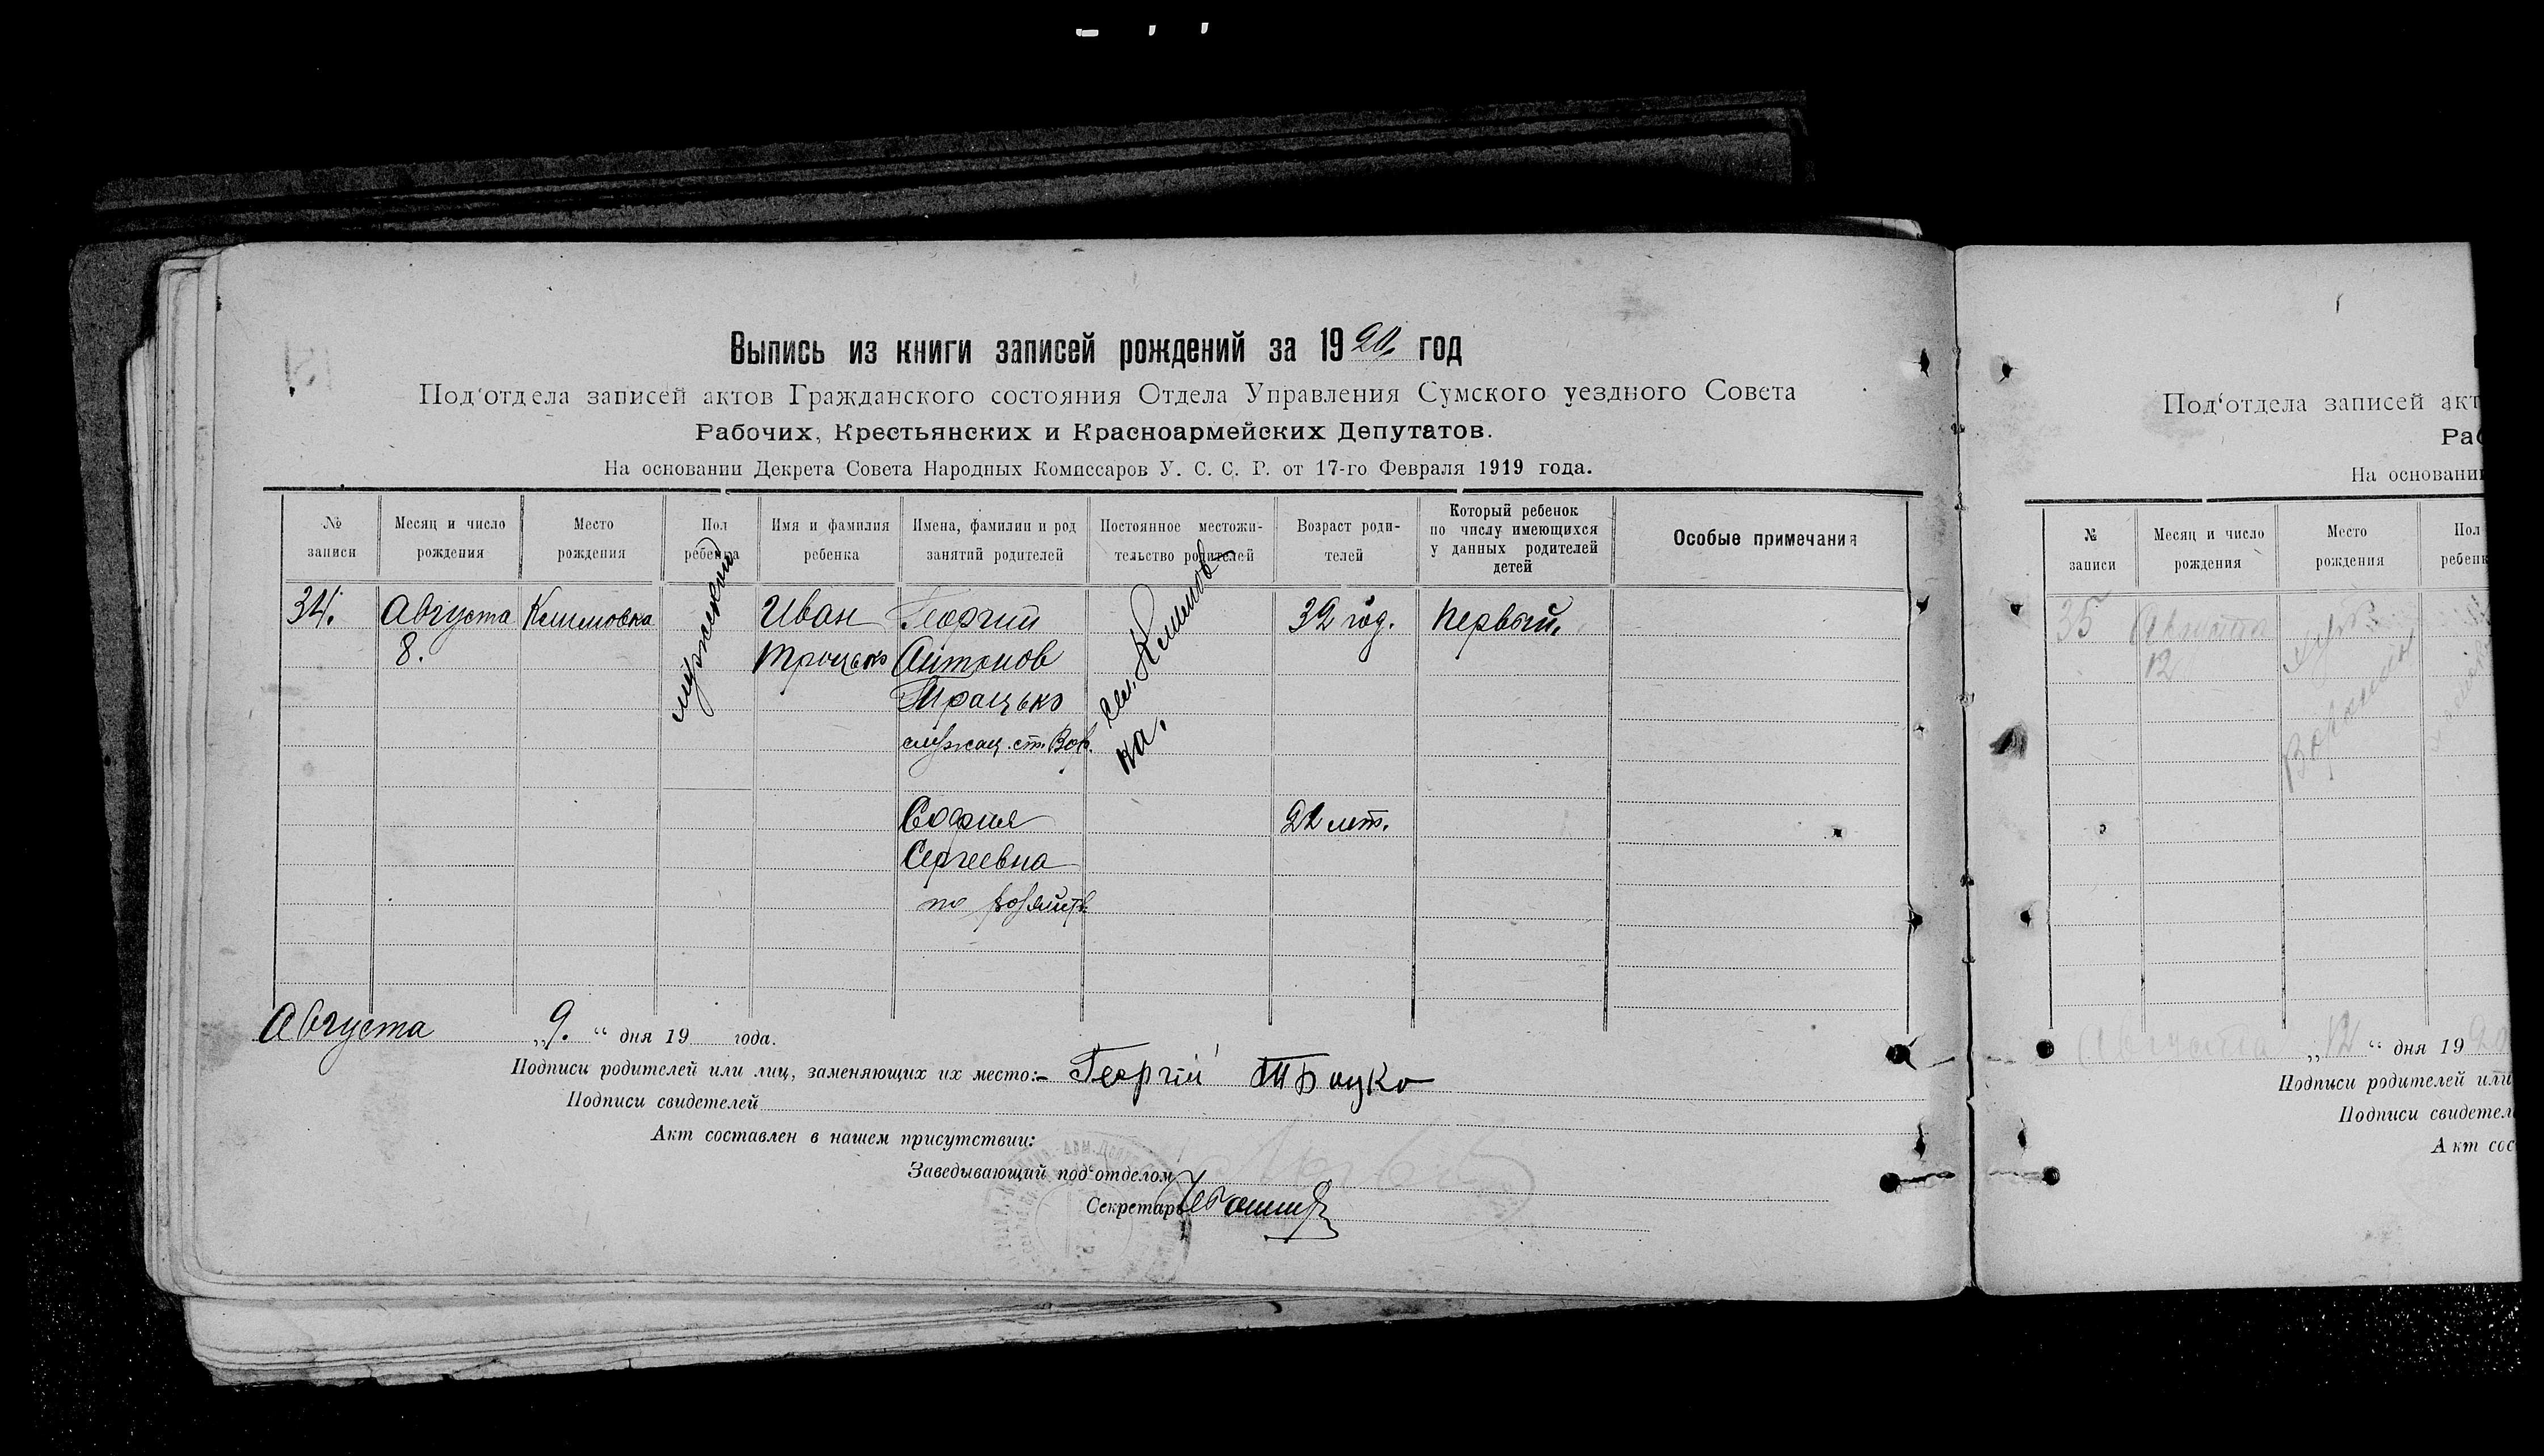 Выпись из книги записей рождений за 1920 год
Под‘отдела записей актов Гражданского состояния Отдела Управления Сумского уездного Совета
Рабочих, Крестьянских и Красноармейских Депутатов.
На основании Декрета Совета Народных Комиссаров У. С. С. Р. от 17-го Февраля 1919 года.
№ записи
Месяц и число рождения
Место рождения
Пол ребенка
Имя и фамилия ребенка
Имена, фамилии и род занятий родителей
Постоянное местожительство родителей
Возраст родителей
Который ребенок по числу имеющихся у данных родителей детей
Особые примечания
34.
Августа
8.
мужской
Иван
Георгий
Антонов
Троцько
служащ. ст.
32 год.
Первый.
София
Сергеевна
по
лет.
Августа „9.“ дня 19 года.
Подписи родителей или лиц, заменяющих их место:- Георгій Троцко
Подписи свидетелей
Акт составлен в нашем присутствии:
Заведывающий под‘отделом
Секретарь
Под‘отдела записей акт
Раб
На основании
№ записи
Месяц и число рождения
Место рождения
Пол ребенк
35
Августа
12
Августа „12“ дня 1920
Подписи родителей или
Подписи свидетел
Акт сос